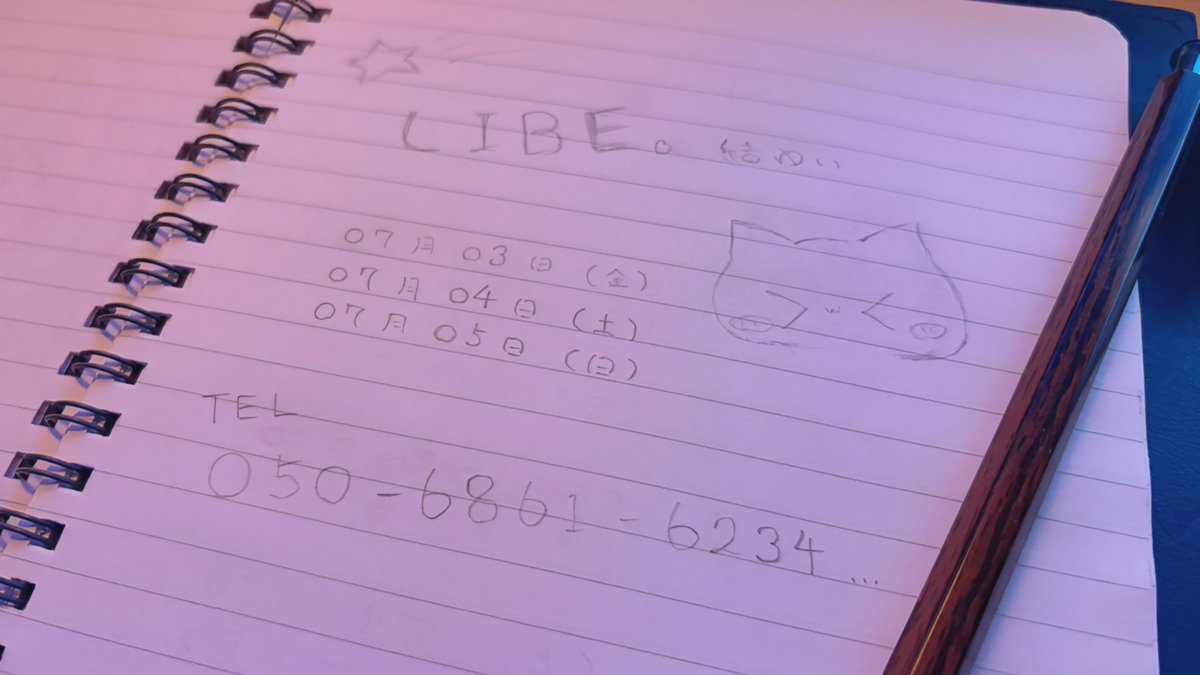 LIBE。結の..
07月03日(金)
07月04日(土)
07月05日(日)
TEL
050-6861-6234...